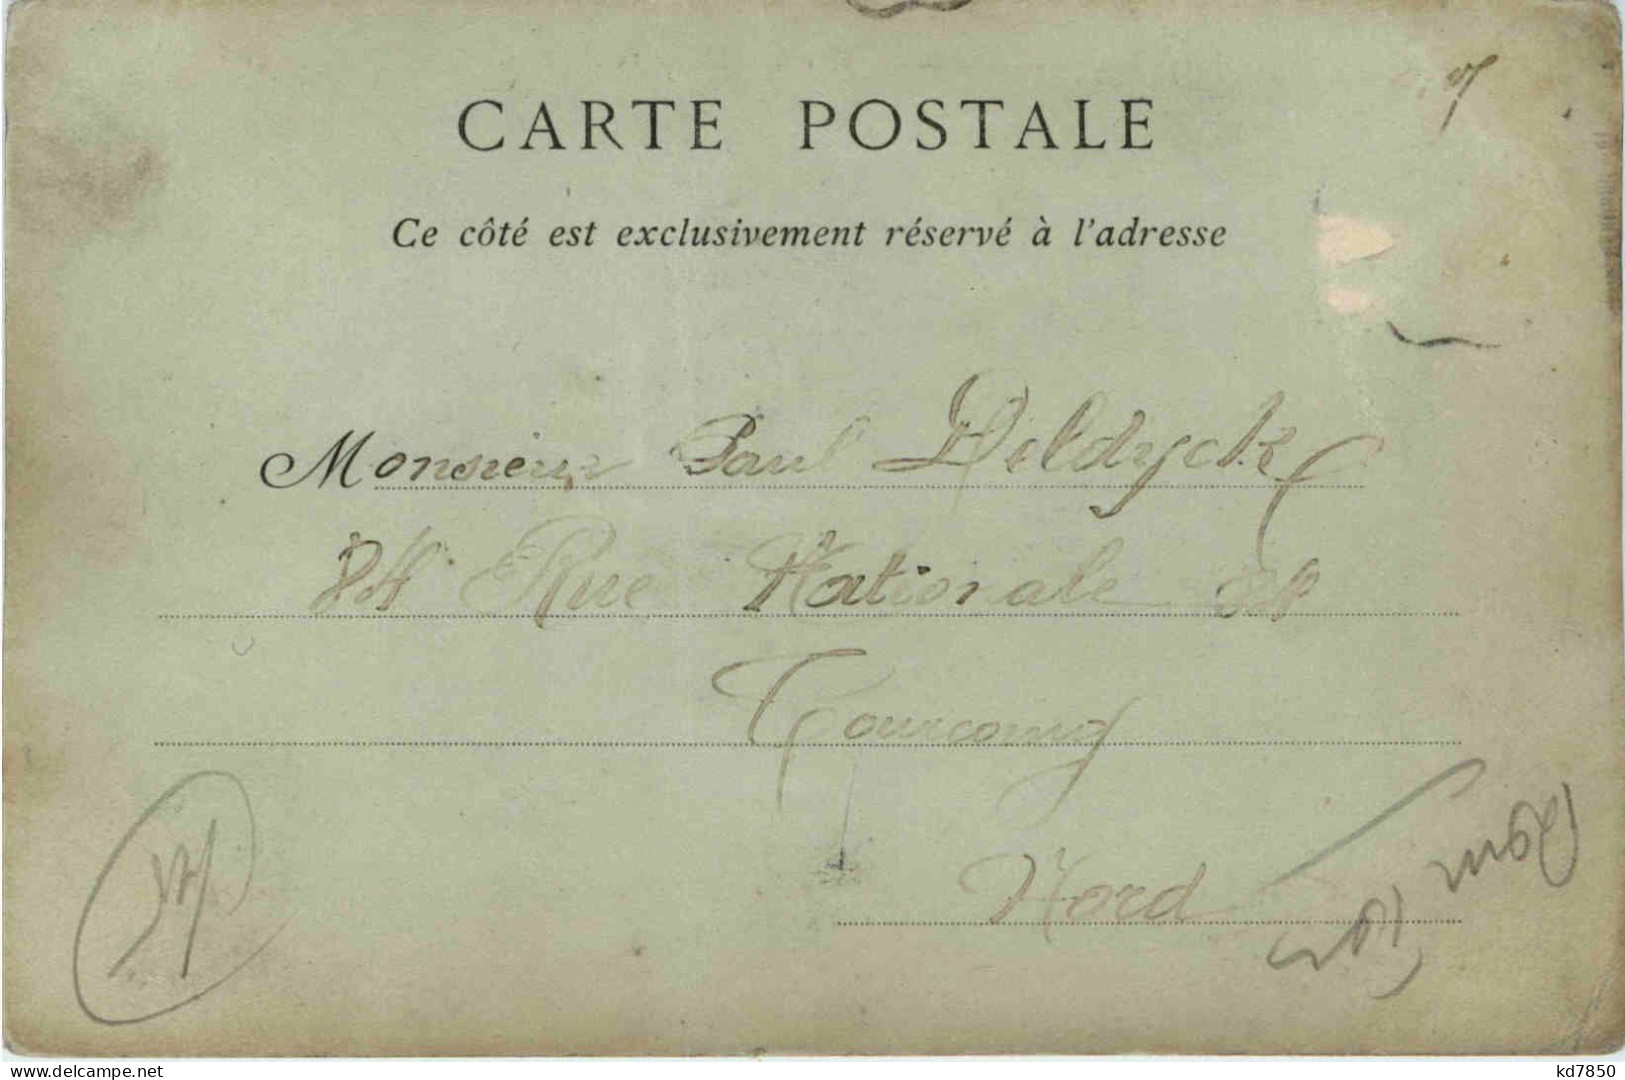 CARTE POSTALE
Ce côté est exclusivement réservé à l'adresse
Monsieur Paul Deldyck
Rue Nationale
Tourcoing
Nord
www.delcampe.net
kd7850